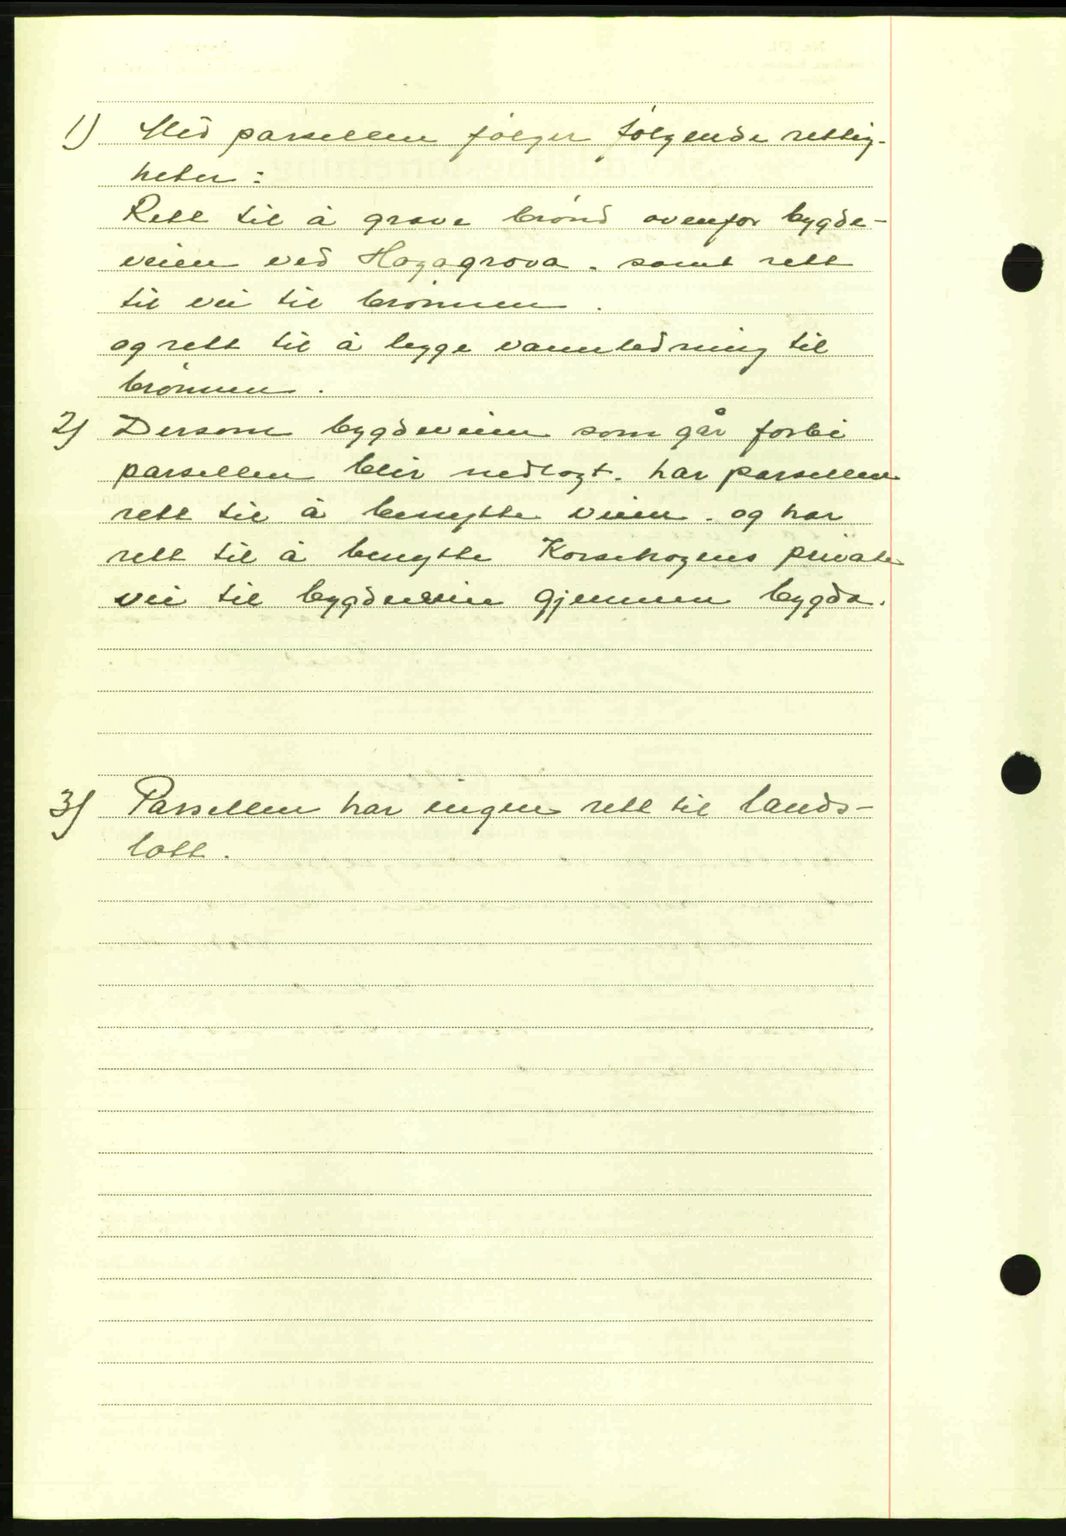 1) Med parsellen følger følgende rettig-
heter :
Rett til å grave brønd ovenfor bygde-
veien ved Hagagrova. samt rett
til vei til brønnen .
og rett til å legge vannledning til
brønnen .
2) Dersom bygdeveien som går forbi
parsellen blir nedlagt. har parsellen
rett til å benytte veien. og har
rett til å benytte Korsehagens private
vei til bygdeveien gjennem bygda.
3) Parsellen har ingen rett til lands-
lott .